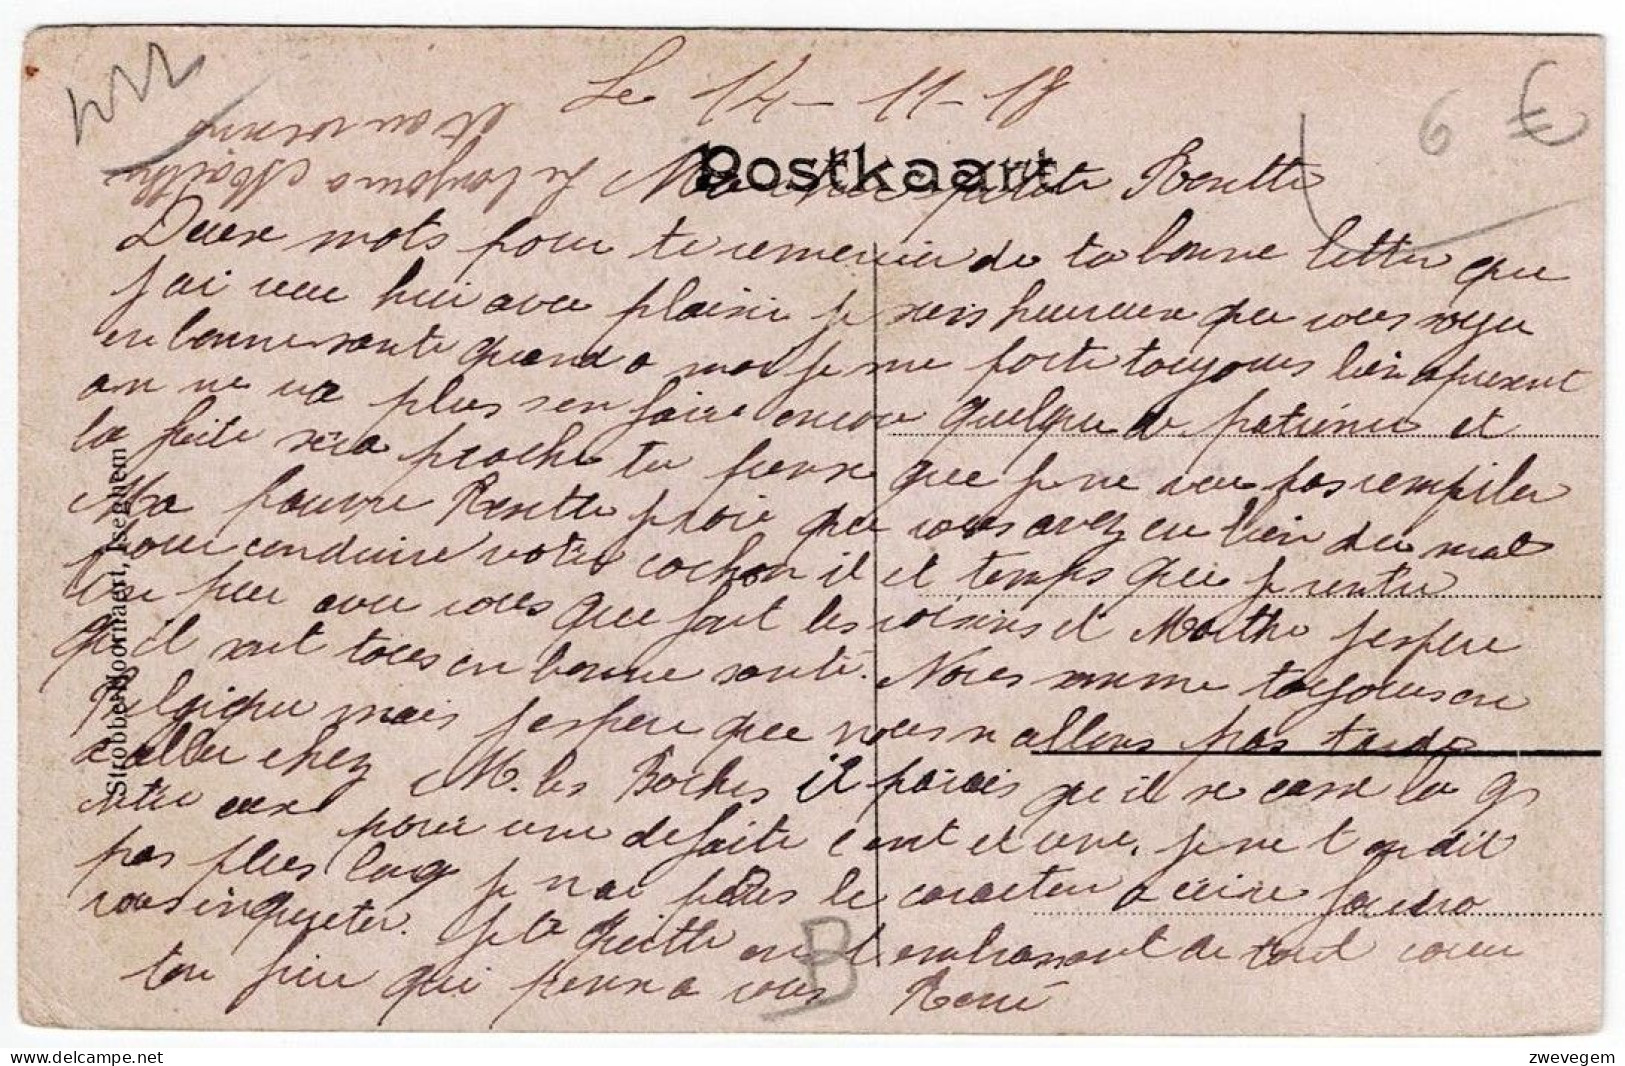 Le 14-11-18
Postkaart
Ma chere petite Renette
Deux mots pour te remercier de ta bonne letter que
j'ai reeu hui avec plaisir je suis heureux que vous soyer
en bonne sante quand a moi je me porte toujours bien apresent
on ne va plus s'en faire encore quelque de patience et
la fuite sera proche tu pense que je ne veu pas rempiler
Ma pauvre Renette je voie que vous avez eu bien du mal
pour conduire votre cochon il et temps que je rentre
Un peu avec vous que font les voisins et Marthe j'espere
qu'il sont tous en bonne santé. Nous somme toujours en
Belgique mais j'espere que nous n'allons pas tarde
a aller chez M. les Boches il parais qu'il se casse la g
entre eux pour une defaite s'ent et une. je ne t'en dit
pas plus long je n'ai pas le caracter a ecrire faudra
vous inqueter. je te quitte en t'embrassant de tout coeur
ton frere qui pense a vous René
et au revoir
Marthe
Strobbe-Hoornaert, Iseghem
6 €
B
zwevegem